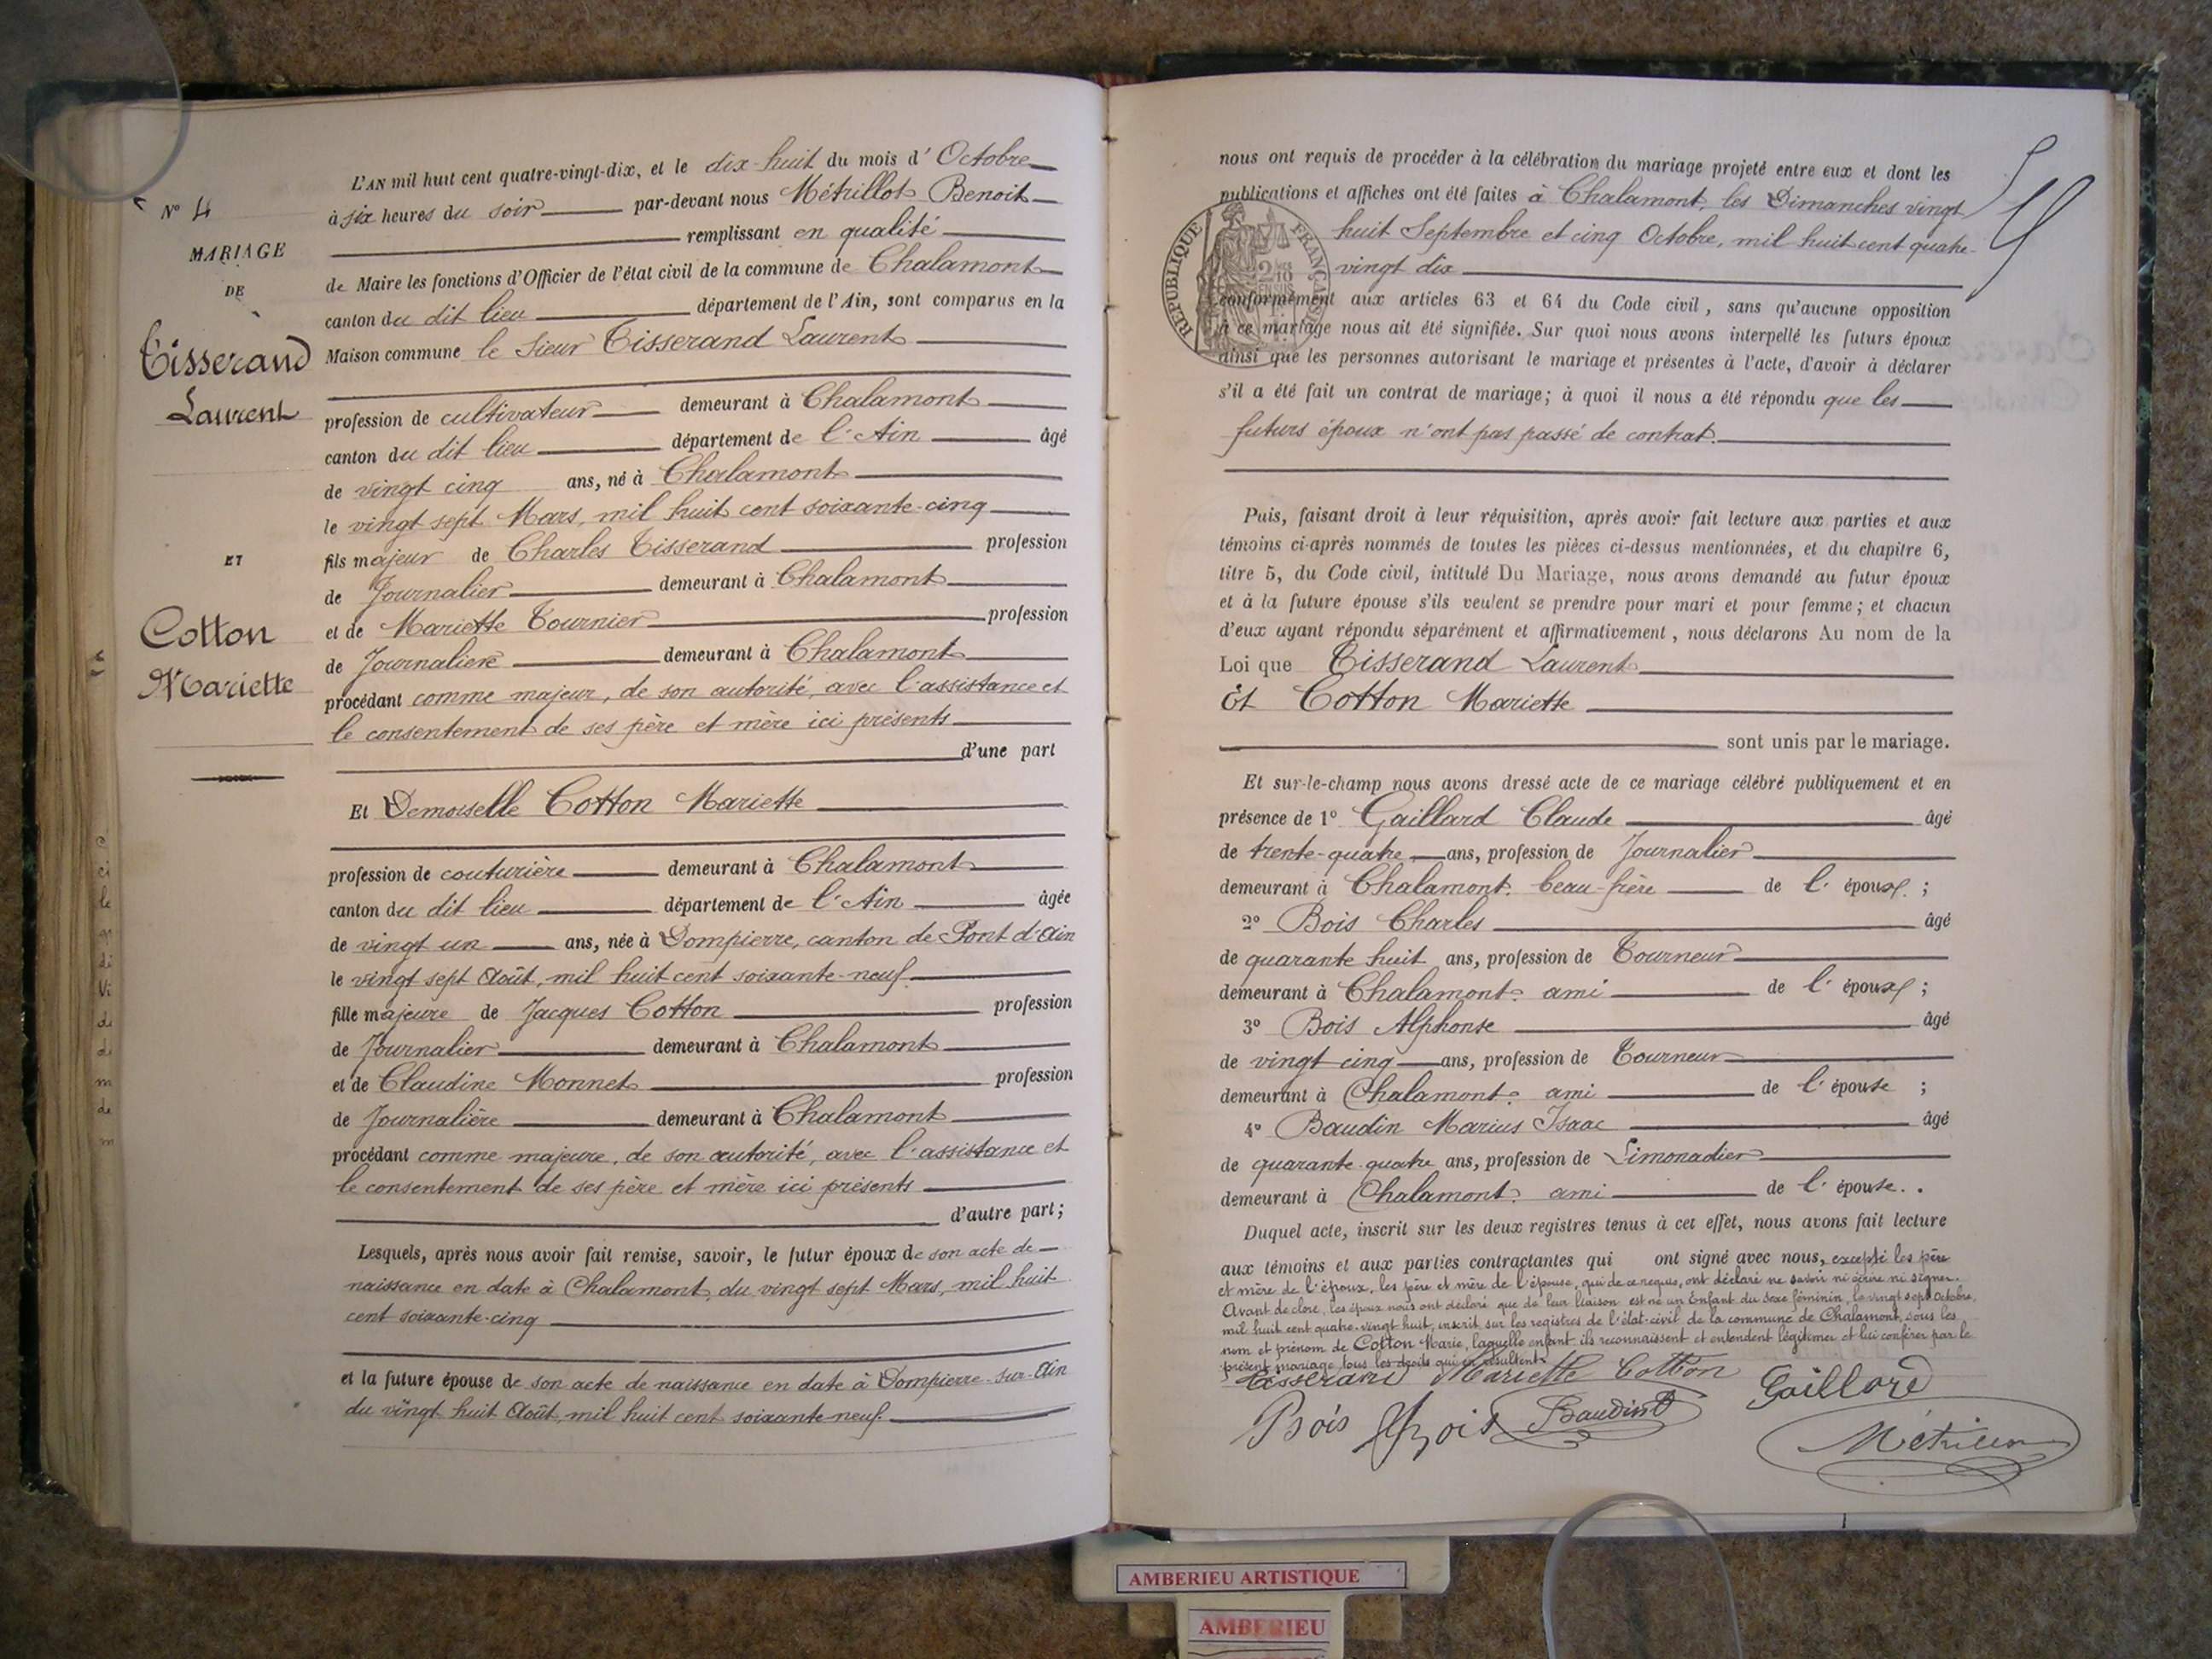 N° 4
MARIAGE
DE
Tisserand
Laurent
ET
Cotton
Mariette
L'AN mil huit cent quatre-vingt-dix, et le dix-huit du mois d'Octobre
à six heures du soir par-devant nous Métrillot Benoit
remplissant en qualité
de Maire les fonctions d'Officier de l'état civil de la commune de Chalamont
canton du dit lieu département de l'Ain, sont comparus en la
Maison commune le Sieur Tisserand Laurent
profession de cultivateur demeurant à Chalamont
canton du dit lieu département de l'Ain âgé
de vingt cinq ans, né à Chalamont
le vingt sept Mars, mil huit cent soixante-cinq
fils majeur de Charles Tisserand profession
de Journalier demeurant à Chalamont
et de Mariette Tournier profession
de Journalière demeurant à Chalamont
procédant comme majeur, de son autorité, avec l'assistance et
le consentement de ses père et mère ici présents
d'une part
Et Demoiselle Cotton Mariette
profession de couturière demeurant à Chalamont
canton du dit lieu département de l'Ain âgée
de vingt un ans, née à Dompierre, canton de Pont d'Ain
le vingt sept Août, mil huit cent soixante-neuf
fille majeure de Jacques Cotton profession
de Journalier demeurant à Chalamont
et de Claudine Monnet profession
de Journalière demeurant à Chalamont
procédant comme majeure, de son autorité, avec l'assistance et
le consentement de ses père et mère ici présents
d'autre part;
Lesquels, après nous avoir fait remise, savoir, le futur époux de son acte de
naissance en date à Chalamont, du vingt sept Mars, mil huit
cent soixante-cinq
et la future épouse de son acte de naissance en date à Dompierre-sur-Ain
du vingt huit Août, mil huit cent soixante-neuf.
nous ont requis de procéder à la célébration du mariage projeté entre eux et dont les
publications et affiches ont été faites à Chalamont, les Dimanches vingt
huit Septembre et cinq Octobre, mil huit cent quatre-
vingt dix
REPUBLIQUE FRANÇAISE
conformément aux articles 63 et 64 du Code civil, sans qu'aucune opposition
à ce mariage nous ait été signifiée. Sur quoi nous avons interpellé les futurs époux
ainsi que les personnes autorisant le mariage et présentes à l'acte, d'avoir à déclarer
s'il a été fait un contrat de mariage; à quoi il nous a été répondu que les
futurs époux n'ont pas passé de contrat.
Puis, faisant droit à leur réquisition, après avoir fait lecture aux parties et aux
témoins ci-après nommés de toutes les pièces ci-dessus mentionnées, et du chapitre 6,
titre 5, du Code civil, intitulé Du Mariage, nous avons demandé au futur époux
et à la future épouse s'ils veulent se prendre pour mari et pour femme; et chacun
d'eux ayant répondu séparément et affirmativement, nous déclarons Au nom de la
Loi que Tisserand Laurent
Et Cotton Mariette
sont unis par le mariage.
Et sur-le-champ nous avons dressé acte de ce mariage célébré publiquement et en
présence de 1° Gaillard Claude âgé
de trente-quatre ans, profession de Journalier
demeurant à Chalamont. beau-frère de l'époux;
2° Bois Charles âgé
de quarante huit ans, profession de Tourneur
demeurant à Chalamont. ami de l'époux;
3° Bois Alphonse âgé
de vingt cinq ans, profession de Tourneur
demeurant à Chalamont. ami de l'épouse;
4° Baudin Marius Isaac âgé
de quarante-quatre ans, profession de Limonadier
demeurant à Chalamont. ami de l'épouse.
Duquel acte, inscrit sur les deux registres tenus à cet effet, nous avons fait lecture
aux témoins et aux parties contractantes qui ont signé avec nous, excepté les père
et mère de l'époux, les père et mère de l'épouse, qui de ce requis, ont déclaré ne savoir ni écrire ni signer.
Avant de clore, les époux nous ont déclaré que de leur liaison est né un Enfant du Sexe féminin, le vingt sept Octobre,
mil huit cent quatre-vingt huit, inscrit sur les registres de l'état-civil de la commune de Chalamont, sous les
nom et prénom de Cotton Marie, laquelle enfant ils reconnaissent et entendent légitimer et lui conférer par le
présent mariage tous les droits qui en résultent.
Tisserand Mariette Cotton Gaillard
Bois Bois Baudin
AMBERIEU ARTISTIQUE
AMBERIEU